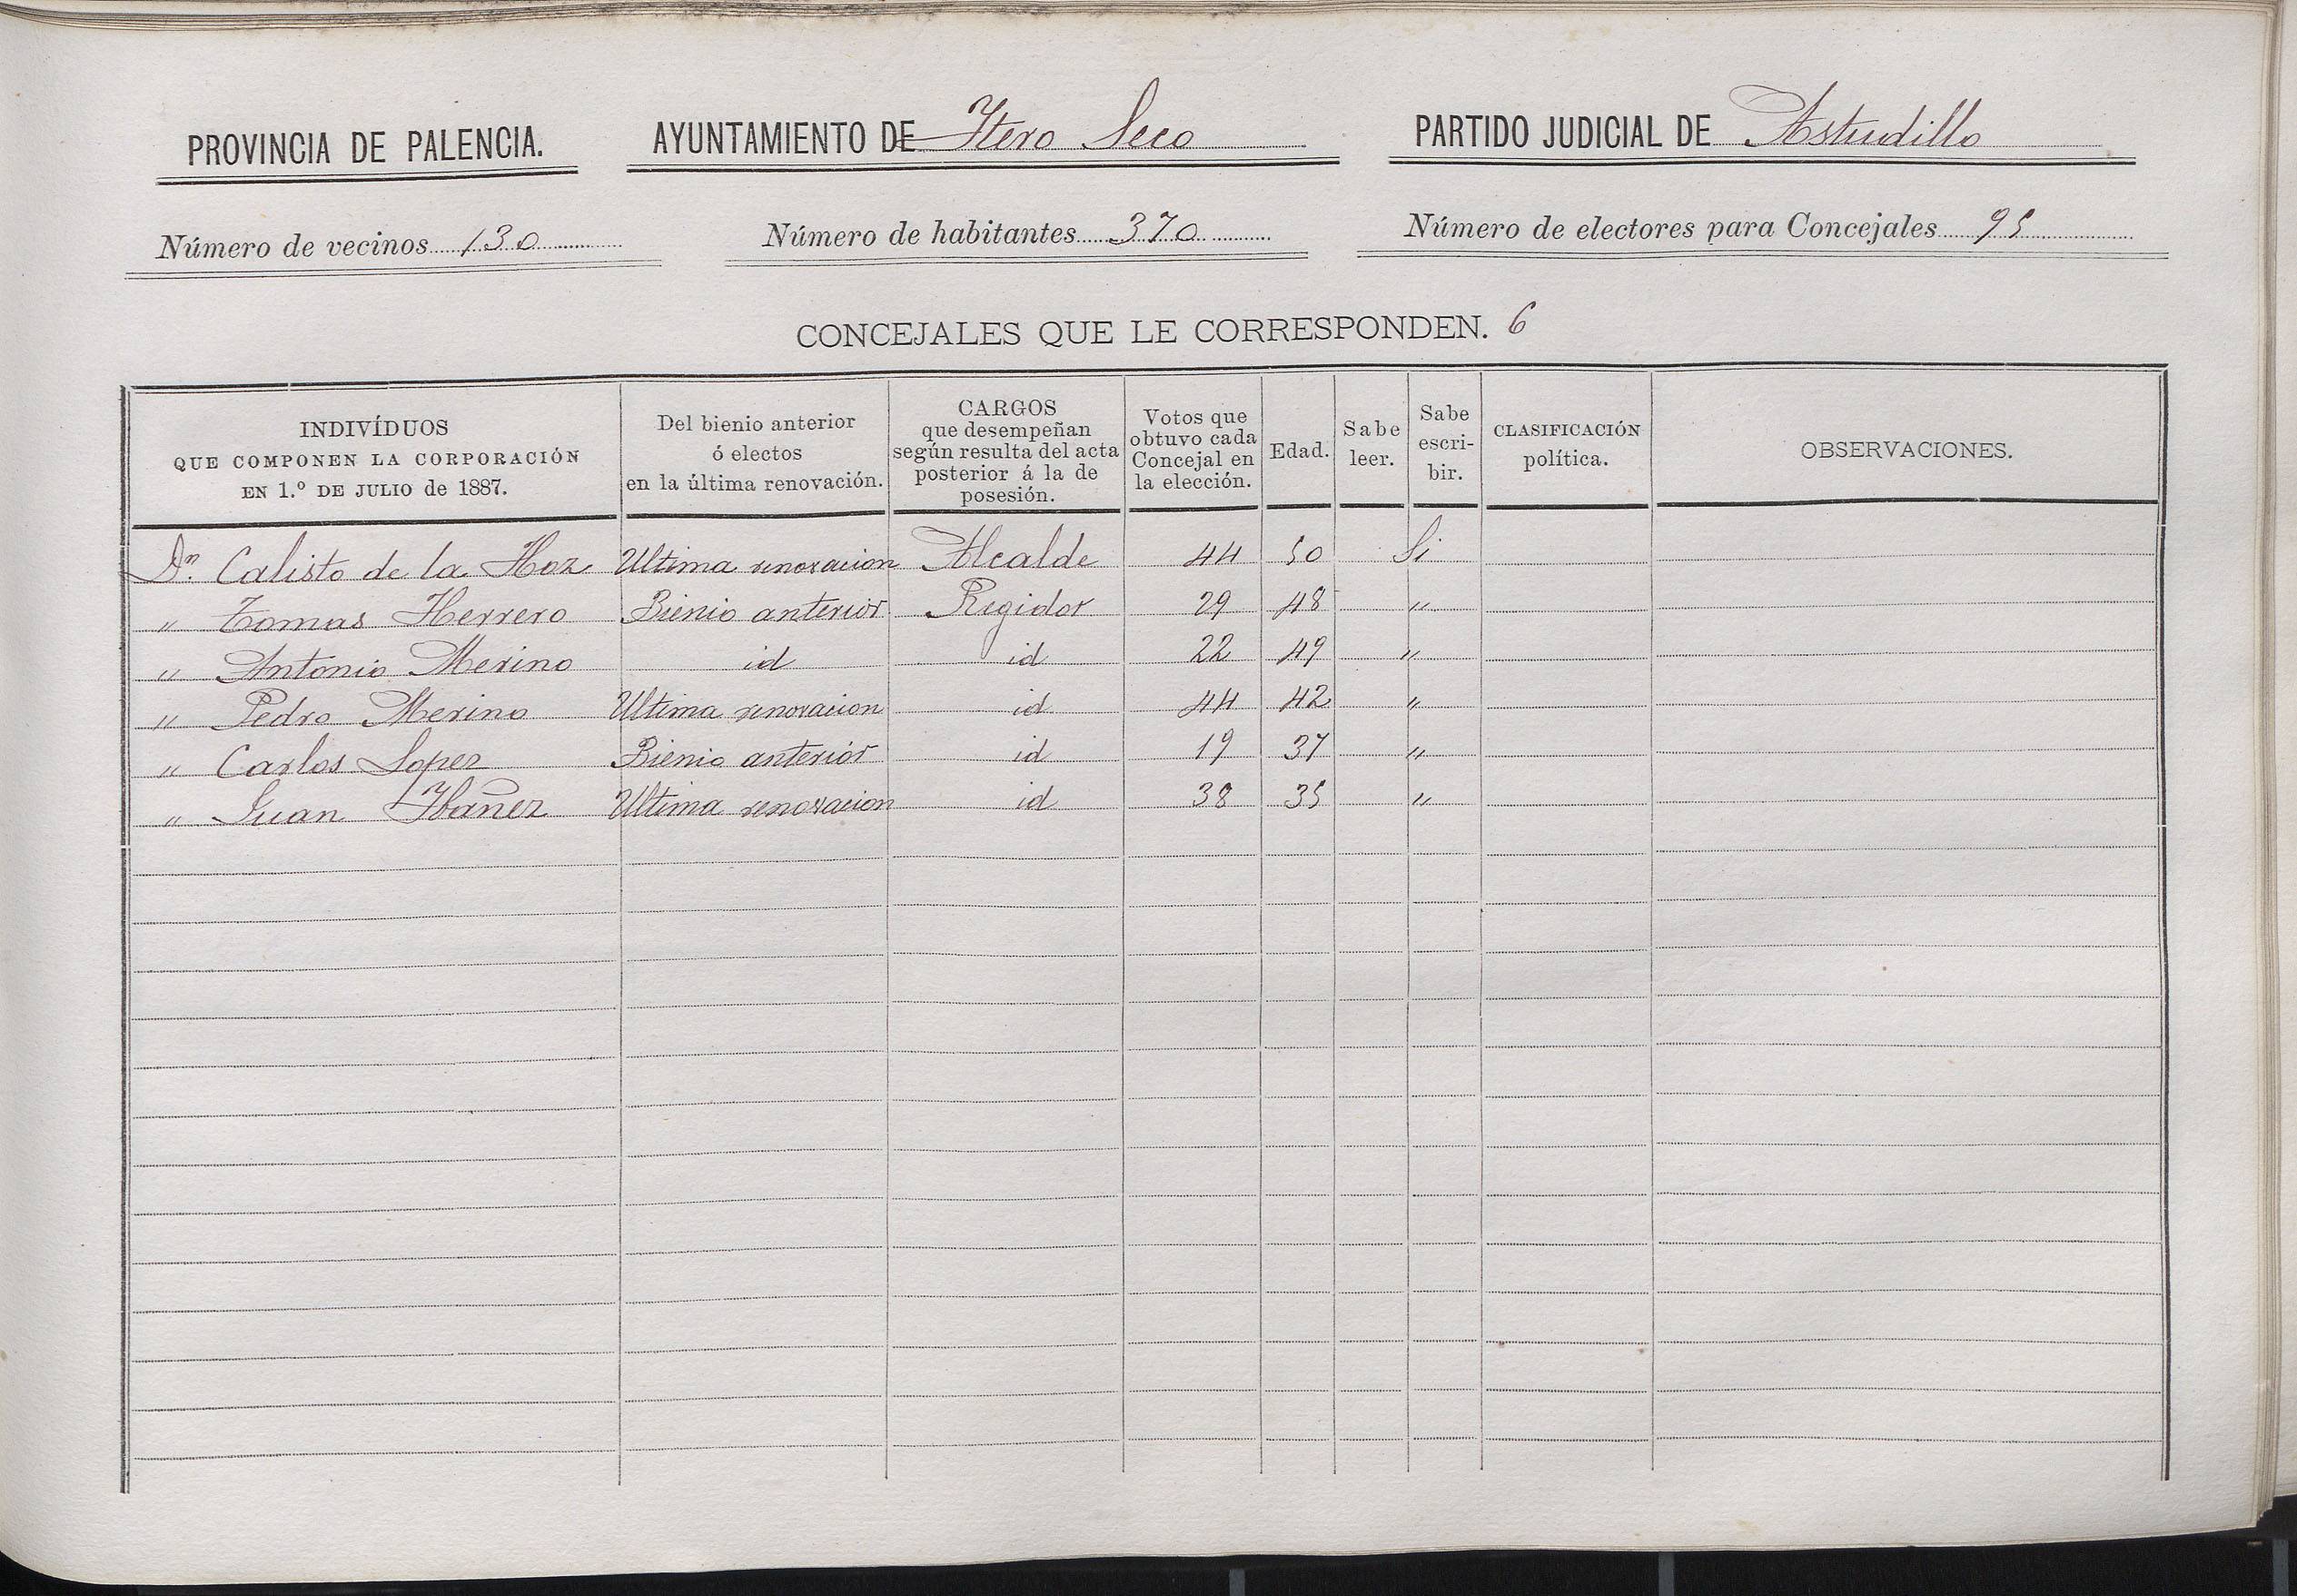 PROVINCIA DE PALENCIA. AYUNTAMIENTO DE Itero Seco PARTIDO JUDICIAL DE Astudillo
Número de vecinos 130 Número de habitantes 370 Número de electores para Concejales 95
CONCEJALES QUE LE CORRESPONDEN. 6
INDIVÍDUOS
QUE COMPONEN LA CORPORACIÓN
EN 1.º DE JULIO de 1887.
Del bienio anterior
ó electos
en la última renovación.
CARGOS
que desempeñan
según resulta del acta
posterior á la de
posesión.
Votos que
obtuvo cada
Concejal en
la elección.
Edad.
Sabe
leer.
Sabe
escri-
bir.
CLASIFICACIÓN
política.
OBSERVACIONES.
Dn. Calisto de la Hoz Ultima renovacion Alcalde 44 50 Si
" Tomas Herrero Bienio anterior Regidor 29 48 "
" Antonio Merino id id 22 49 "
" Pedro Merino Ultima renovacion id 44 42 "
" Carlos Lopez Bienio anterior id 19 37 "
" Juan Ybañez Ultima renovacion id 38 35 "